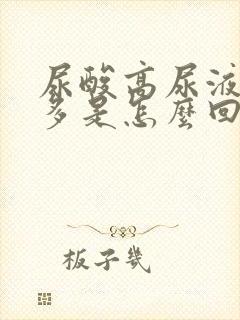 尿酸高尿液
多是怎麼回
板子幾